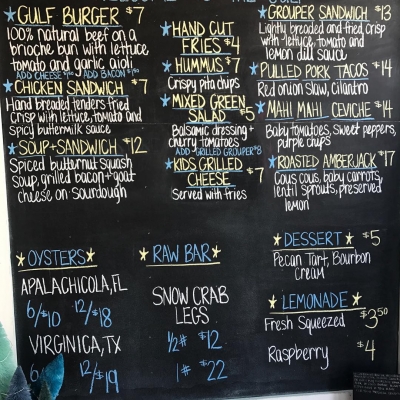 GULF BURGER $7
100% natural beef on a
brioche bun with lettuce,
tomato and garlic aioli
ADD CHEESE ADD BACON
CHICKEN SANDWICH $7
Hand breaded tenders fried
crisp with lettuce, tomato and
spicy buttermilk sauce
SOUP+SANDWICH $12
Spiced butternut squash
soup, grilled bacon+goat
cheese on sourdough
HAND CUT
FRIES $4
HUMMUS $7
Crispy pita chips
MIXED GREEN
SALAD $5
Balsamic dressing +
cherry tomatoes
ADD-GRILLED GROUPER $8
KIDS GRILLED
CHEESE $7
Served with fries
GROUPER SANDWICH $13
Lightly breaded and fried crisp
with lettuce, tomato and
lemon dill sauce
PULLED PORK TACOS $14
Red onion slaw, cilantro
MAHI MAHI CEVICHE $14
Baby tomatoes, sweet peppers,
purple chips
ROASTED AMBERJACK $17
Cous cous, baby carrots,
lentil sprouts, preserved
lemon
OYSTERS
APALACHICOLA, FL
6/$10 12/$18
VIRGINICA, TX
6/ 12/$19
RAW BAR
SNOW CRAB
LEGS
1/2# $12
1# $22
DESSERT $5
Pecan Tart, Bourbon
Cream
LEMONADE
Fresh Squeezed $3.50
Raspberry $4